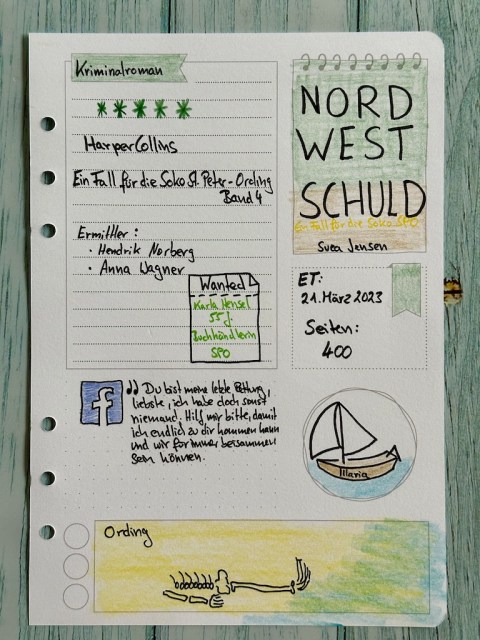 Kriminalroman
HarperCollins
Ein Fall für die Soko St. Peter-Ording
Band 4
Ermittler:
• Hendrik Norberg
• Anna Wagner
Wanted
Karla Hensel
55 J.
Buchhändlerin
SPO
NORD
WEST
SCHULD
Ein Fall für die Soko SPO
Svea Jensen
ET:
21. März 2023
Seiten:
400
f
" Du bist meine letzte Rettung,
liebste, ich habe doch sonst
niemand. Hilf mir bitte, damit
ich endlich zu dir kommen kann
und wir für immer beisammen
sein können.
Ilaria
Ording